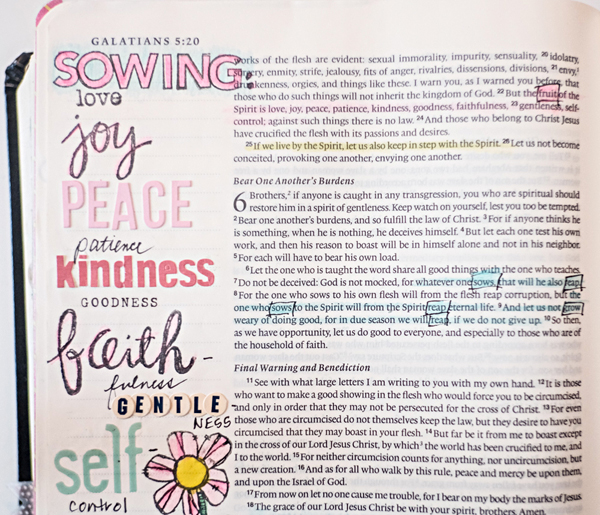 GALATIANS 5:20
SOWING:
love
joy
PEACE
patience
kindness
GOODNESS
faith-
fulness
GENTLE-
NESS
self-
control
works of the flesh are evident: sexual immorality, impurity, sensuality, 20 idolatry,
sorcery, enmity, strife, jealousy, fits of anger, rivalries, dissensions, divisions, 21 envy,
drunkenness, orgies, and things like these. I warn you, as I warned you before, that
those who do such things will not inherit the kingdom of God. 22 But the fruit of the
Spirit is love, joy, peace, patience, kindness, goodness, faithfulness, 23 gentleness, self-
control; against such things there is no law. 24 And those who belong to Christ Jesus
have crucified the flesh with its passions and desires.
25 If we live by the Spirit, let us also keep in step with the Spirit. 26 Let us not become
conceited, provoking one another, envying one another.
Bear One Another's Burdens
6 Brothers, if anyone is caught in any transgression, you who are spiritual should
restore him in a spirit of gentleness. Keep watch on yourself, lest you too be tempted.
2 Bear one another's burdens, and so fulfill the law of Christ. 3 For if anyone thinks he
is something, when he is nothing, he deceives himself. 4 But let each one test his own
work, and then his reason to boast will be in himself alone and not in his neighbor.
5 For each will have to bear his own load.
6 Let the one who is taught the word share all good things with the one who teaches.
7 Do not be deceived: God is not mocked, for whatever one sows, that will he also reap.
8 For the one who sows to his own flesh will from the flesh reap corruption, but the
one who sows to the Spirit will from the Spirit reap eternal life. 9 And let us not grow
weary of doing good, for in due season we will reap, if we do not give up. 10 So then,
as we have opportunity, let us do good to everyone, and especially to those who are of
the household of faith.
Final Warning and Benediction
11 See with what large letters I am writing to you with my own hand. 12 It is those
who want to make a good showing in the flesh who would force you to be circumcised,
and only in order that they may not be persecuted for the cross of Christ. 13 For even
those who are circumcised do not themselves keep the law, but they desire to have you
circumcised that they may boast in your flesh. 14 But far be it from me to boast except
in the cross of our Lord Jesus Christ, by which the world has been crucified to me, and
I to the world. 15 For neither circumcision counts for anything, nor uncircumcision, but
a new creation. 16 And as for all who walk by this rule, peace and mercy be upon them,
and upon the Israel of God.
17 From now on let no one cause me trouble, for I bear on my body the marks of Jesus.
18 The grace of our Lord Jesus Christ be with your spirit, brothers. Amen.